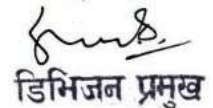 डिभिजन प्रमुख